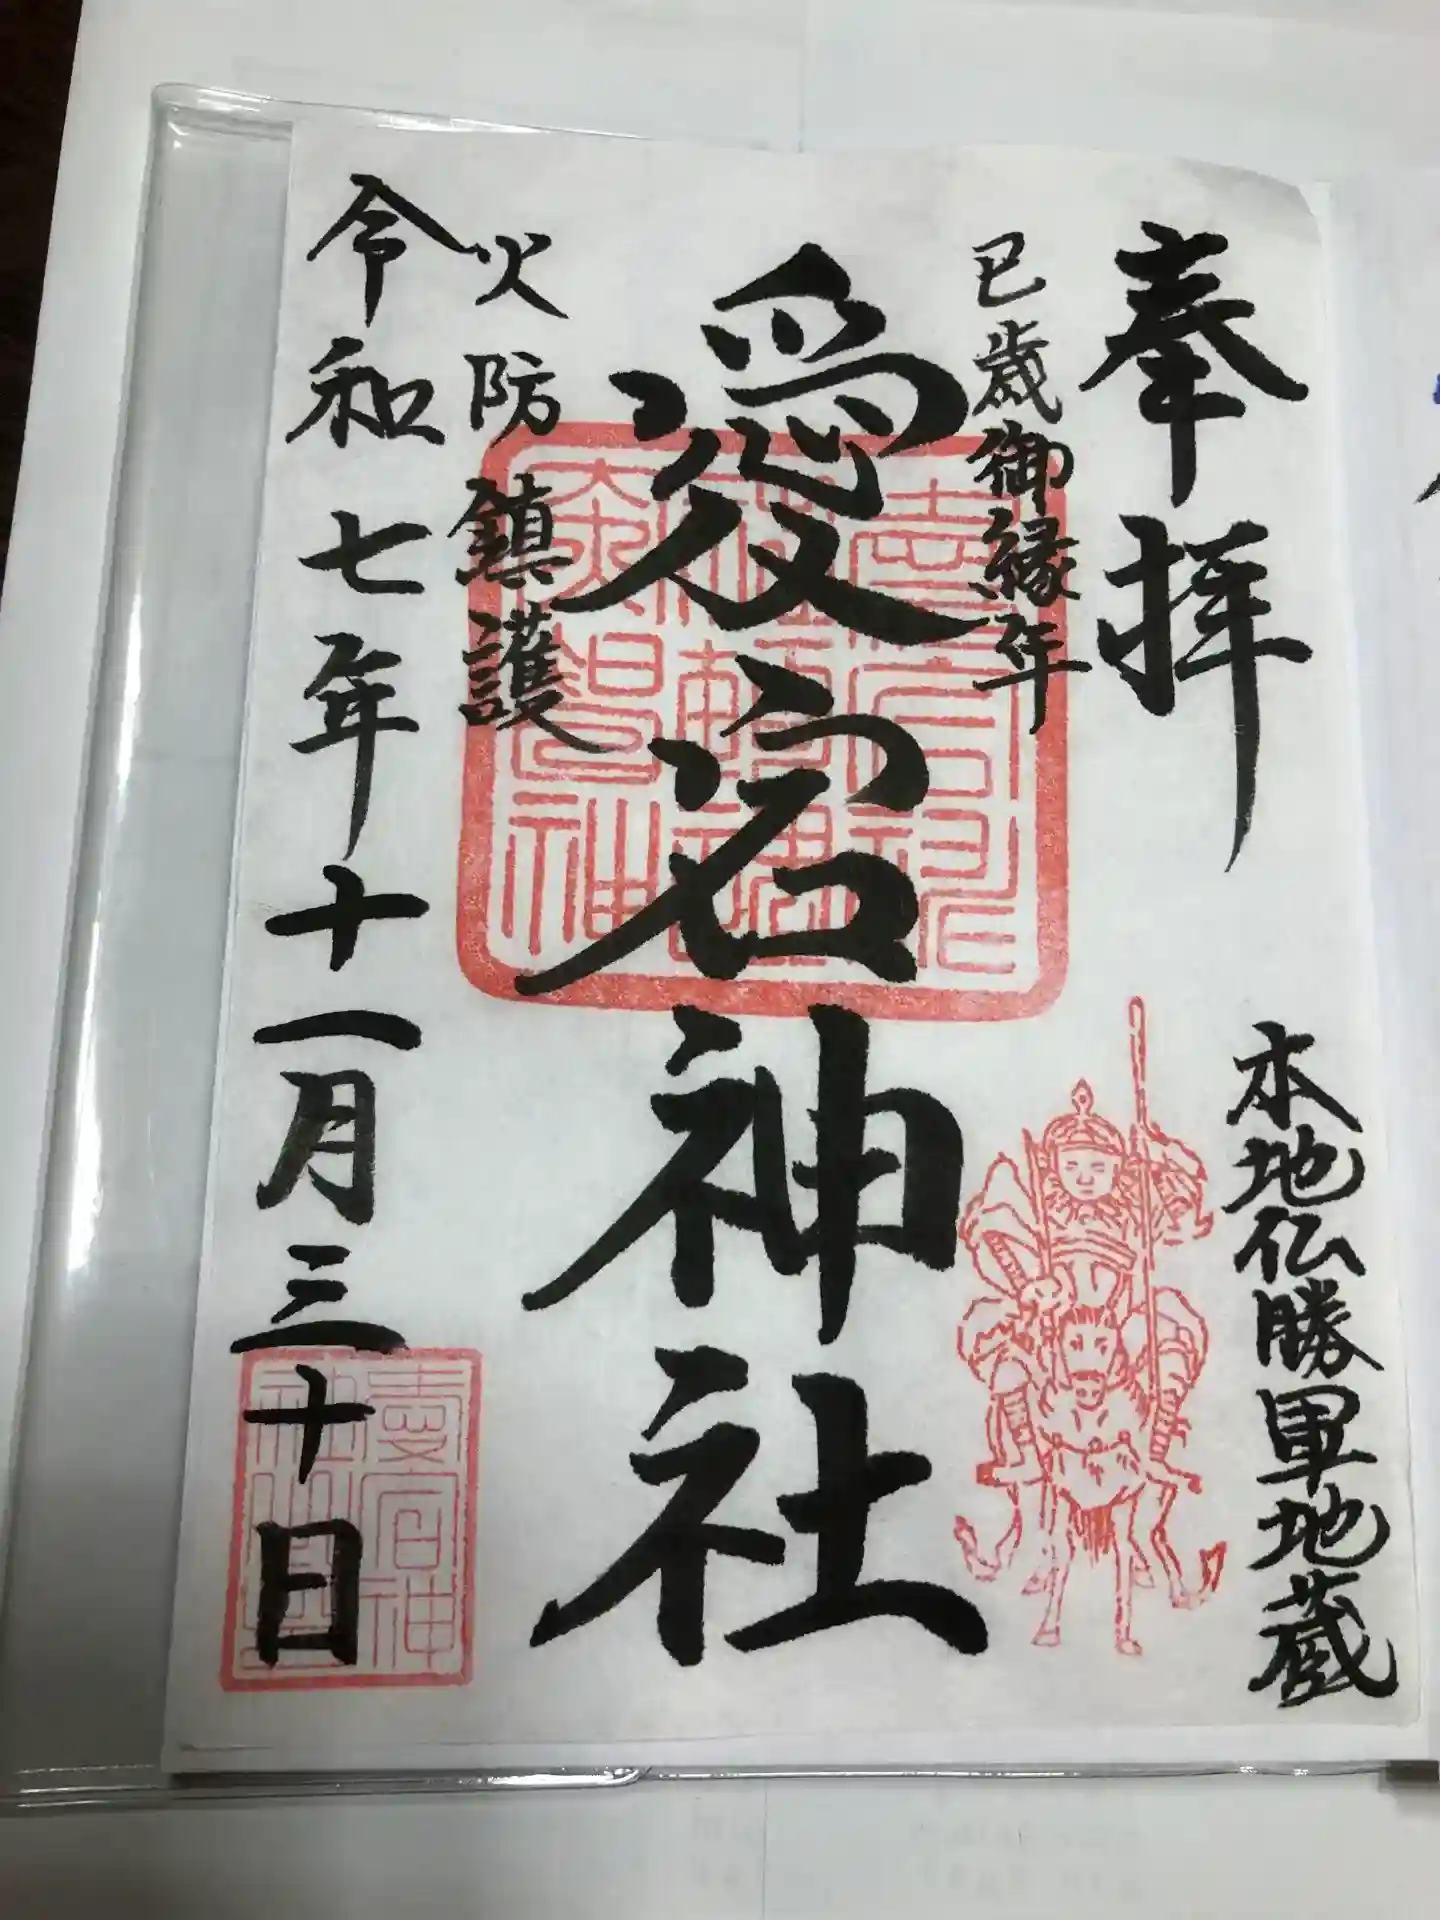 奉拝
本地仏勝軍地蔵
巳歳御縁年
愛宕神社
火防鎮護
令和七年十一月三十日
愛宕神